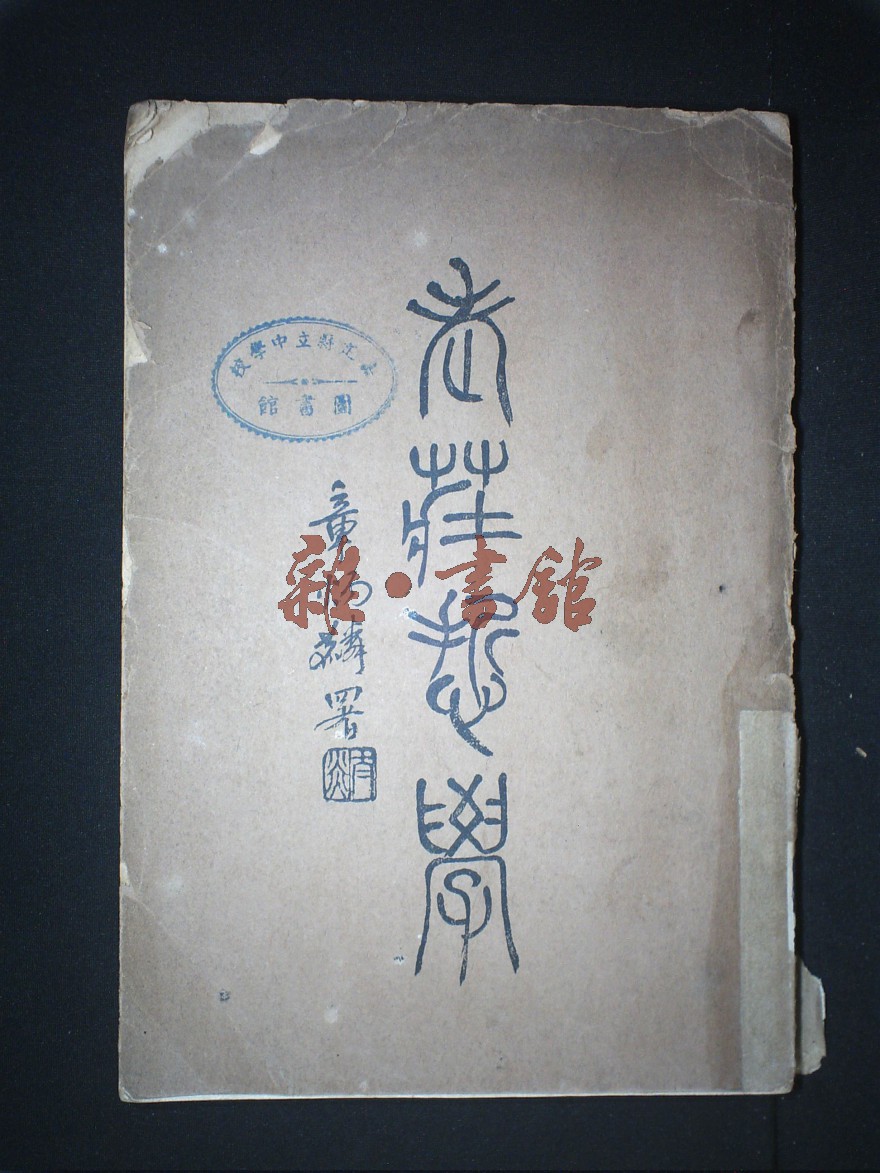 老莊哲學
章炳麟署
立中學校
圖書館
雜·書館